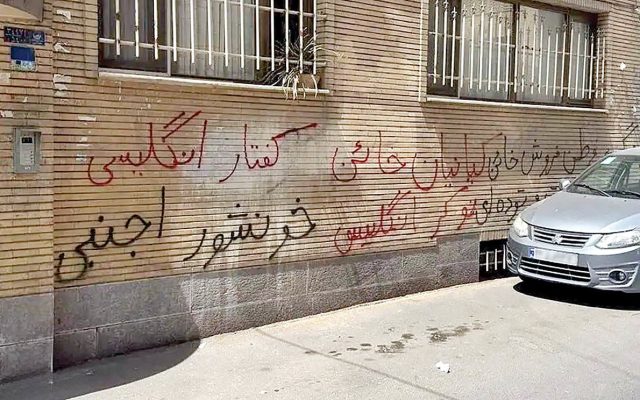 وطن فروش خائن کیانیان خائن کفتار انگلیسی
توده ای نوکر انگلیس خونشور اجنبی